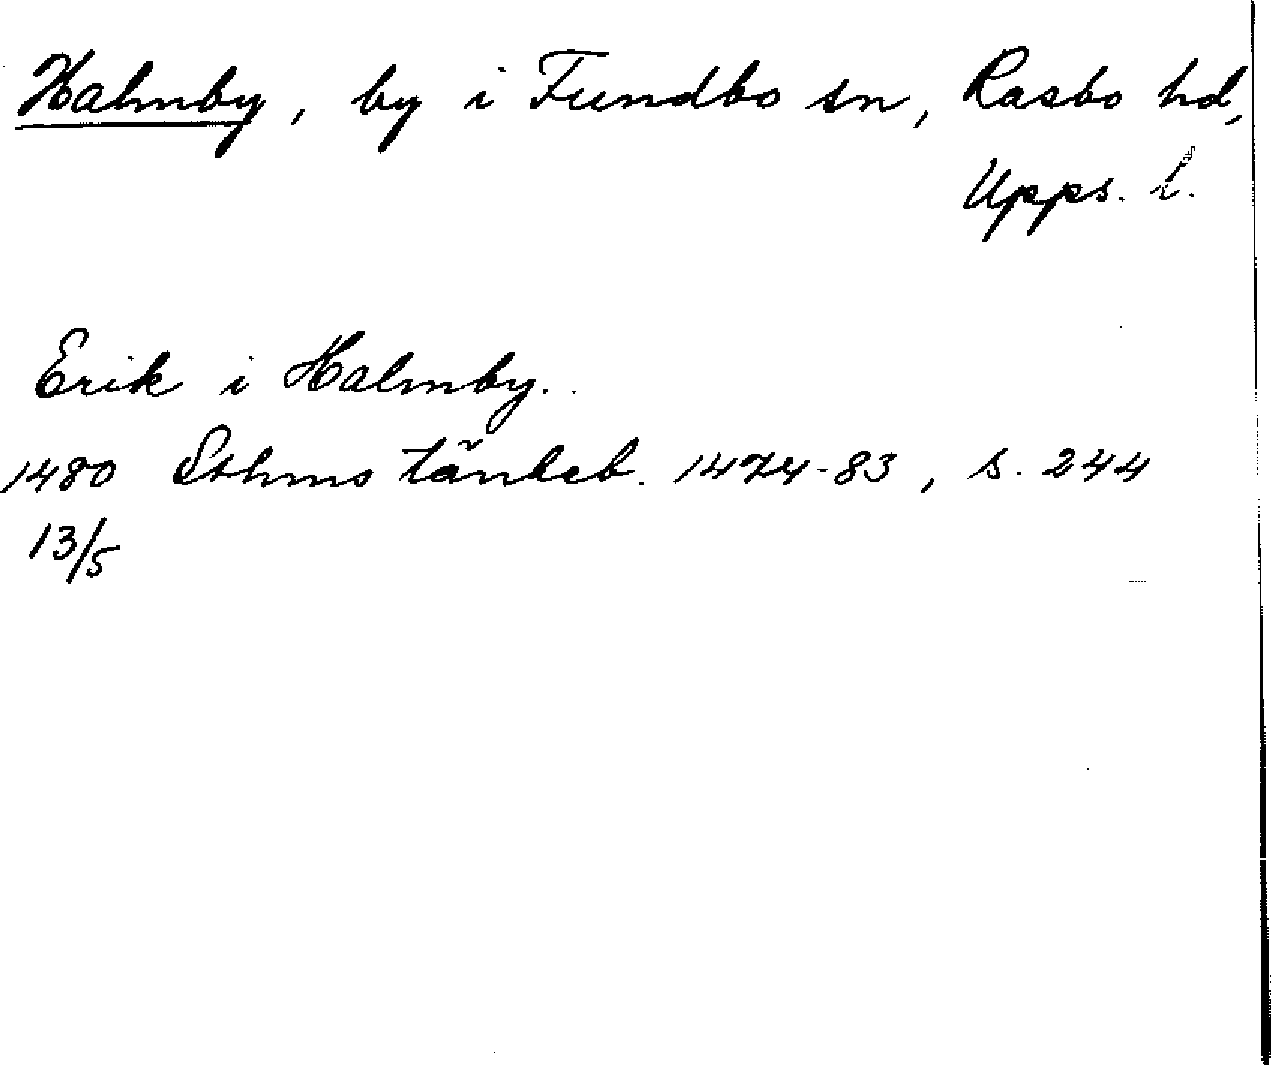 Halmby, by i Fundbo sn, Rasbo hd,
Upps. l.
Erik i Halmby.
1480 Sthms tänkeb. 1474-83, s. 244
13/5